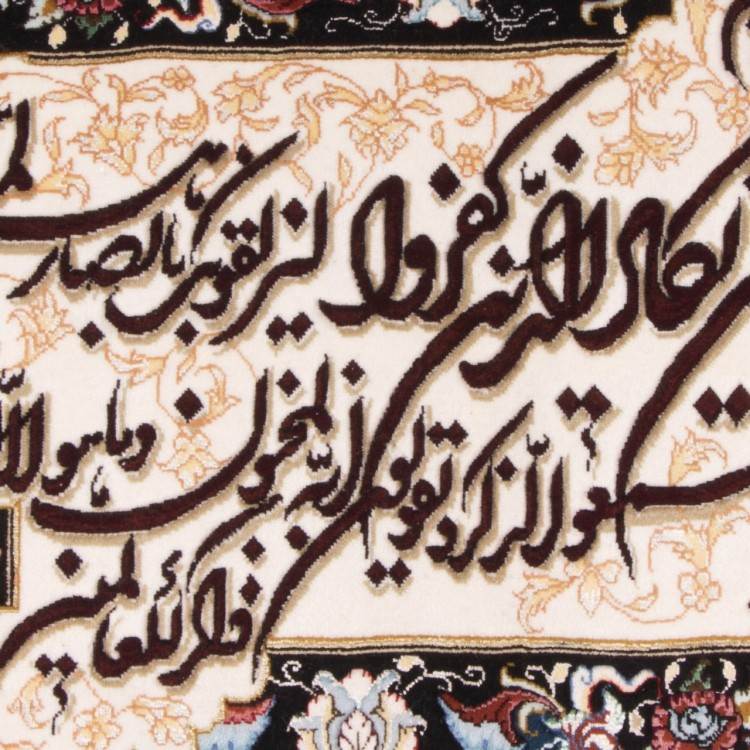 يكاد الذين كفروا ليزلقونك بابصار
سمعوا الذكر ويقولون انه لمجنون وما هو الا
ذكر للعالمين